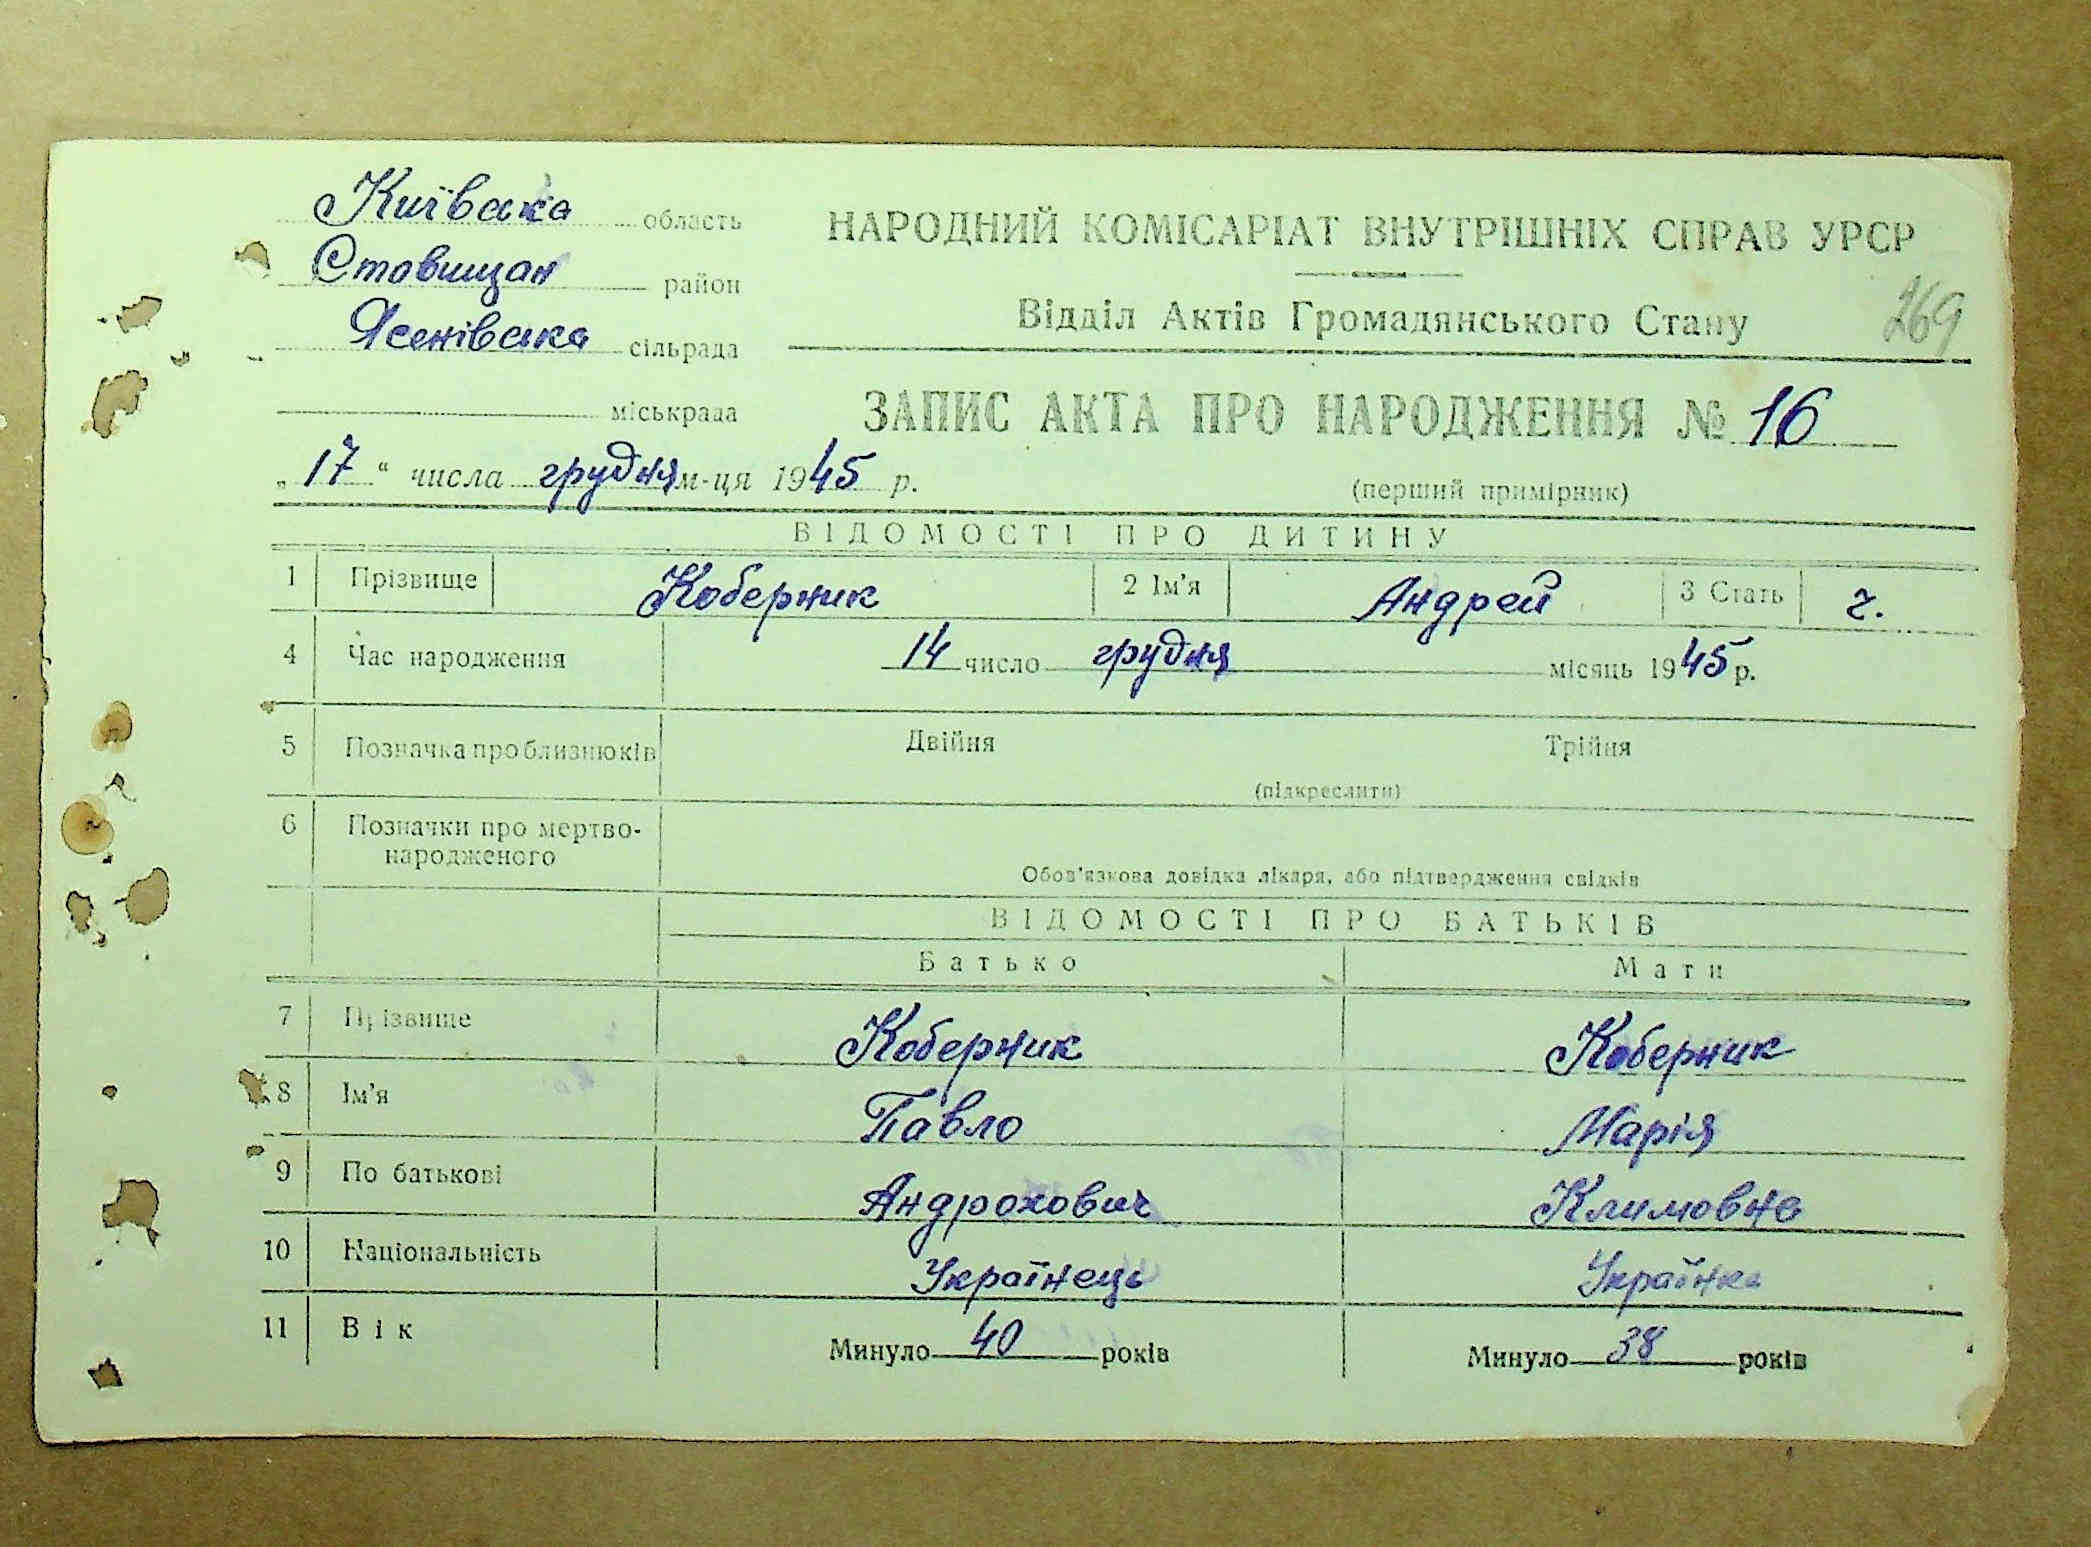 Київська область
Ставищан район
Ясенівська сільрада
міськрада
НАРОДНИЙ КОМІСАРІАТ ВНУТРІШНІХ СПРАВ УРСР
Відділ Актів Громадянського Стану
269
ЗАПИС АКТА ПРО НАРОДЖЕННЯ № 16
„17“ числа грудня м-ця 1945 р.
(перший примірник)
ВІДОМОСТІ ПРО ДИТИНУ
1 Прізвище Коберник 2 Ім'я Андрей 3 Стать ч.
4 Час народження 14 число грудня місяць 1945 р.
5 Позначка про близнюків Двійня Трійня
(підкреслити)
6 Позначки про мертво-
народженого
Обов'язкова довідка лікаря, або підтвердження свідків
ВІДОМОСТІ ПРО БАТЬКІВ
Батько Мати
7 Прізвище Коберник Коберник
8 Ім'я Павло Марія
9 По батькові Андрохович Климовна
10 Національність Українець Українка
11 Вік Минуло 40 років Минуло 38 років